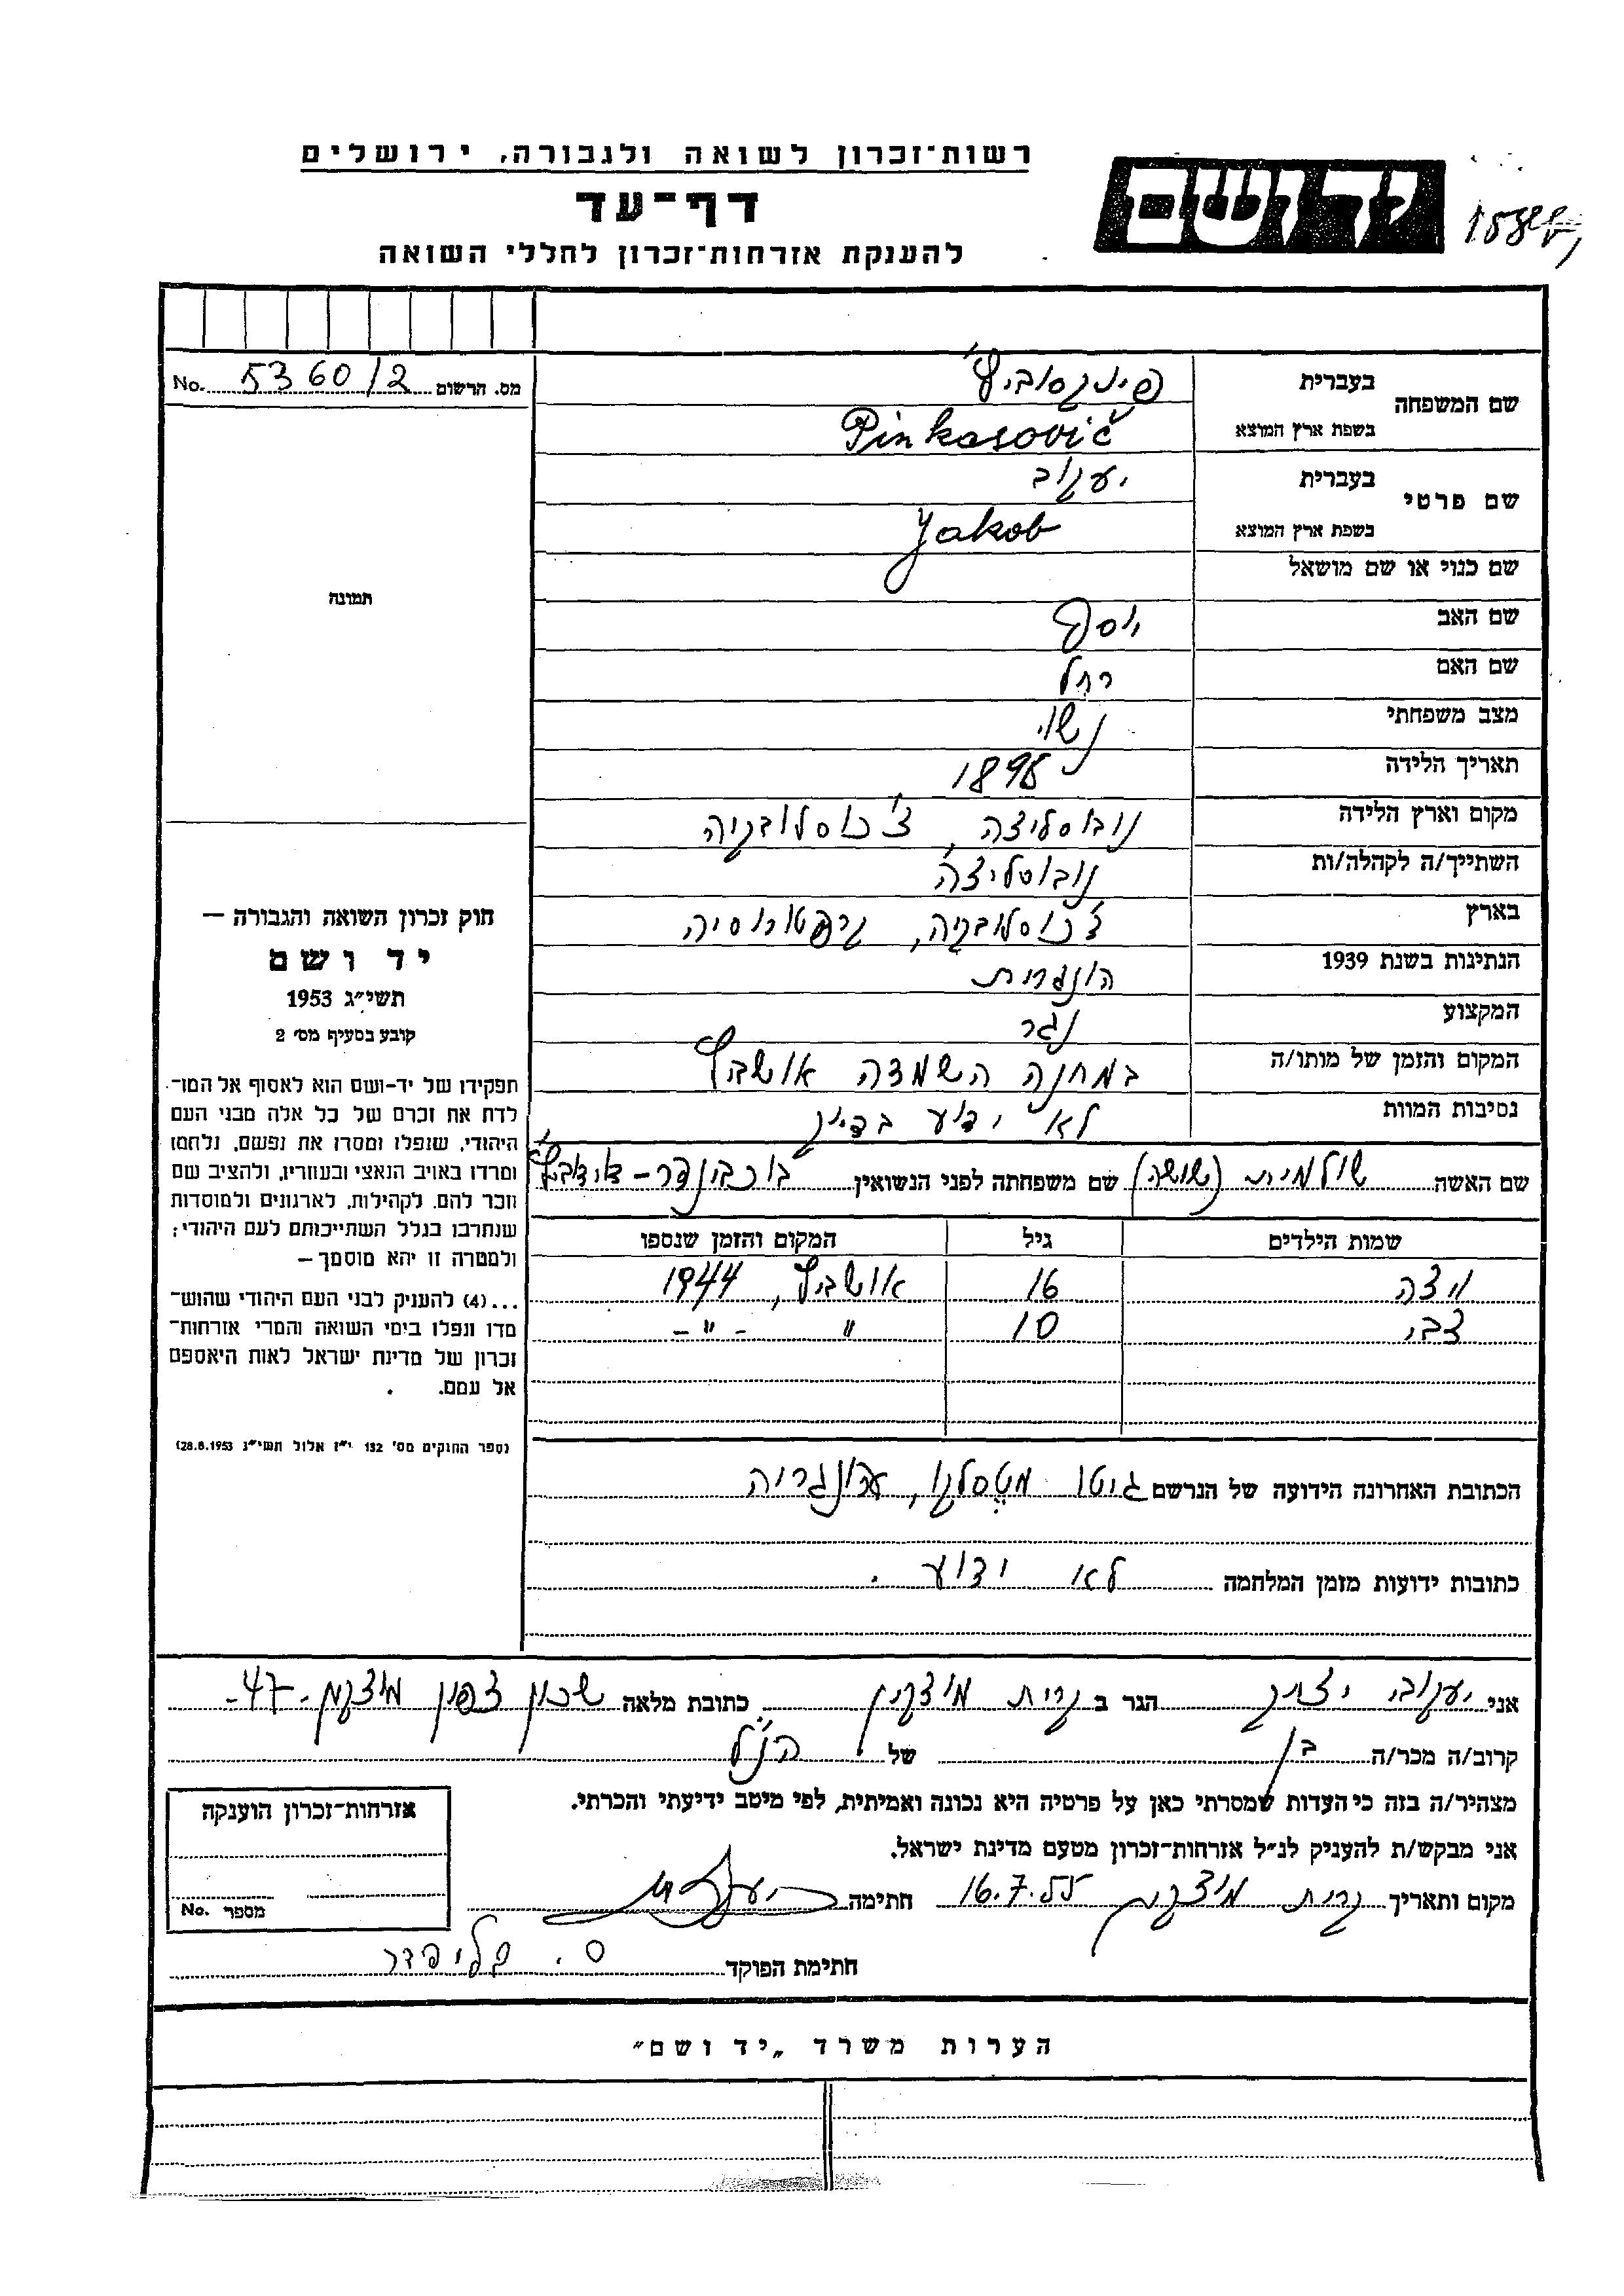 רשות־זכרון לשואה ולגבורה, ירושלים
יד ושם
דף־עד
להענקת אזרחות־זכרון לחללי השואה
מס. הרשום 5360/2 No.
שם המשפחה
בעברית פינקסוביץ'
בשפת ארץ המוצא Pinkasovič
שם פרטי
בעברית יעקוב
בשפת ארץ המוצא Jakob
שם כנוי או שם מושאל
שם האב יוסף
שם האם רחל
מצב משפחתי נשוי
תאריך הלידה 1898
מקום וארץ הלידה נובוסליצה, צ'כוסלובקיה
השתייך/ה לקהלה/ות נובוסליצה
בארץ צ'כוסלובקיה, קרפטורוסיה
הנתינות בשנת 1939 הונגרית
המקצוע נגר
המקום והזמן של מותו/ה במחנה השמדה אושביץ
נסיבות המוות לא ידוע בדיוק
שם האשה שולמית (שושה) שם משפחתה לפני הנשואין
שמות הילדים גיל המקום והזמן שנספו
16 אושביץ, 1944
צבי 10 " - " -
הכתובת האחרונה הידועה של הנרשם גיטו
כתובות ידועות מזמן המלחמה לא ידוע.
תמונה
חוק זכרון השואה והגבורה —
יד ושם
תשי״ג 1953
קובע בסעיף מס׳ 2
תפקידו של יד־ושם הוא לאסוף אל המו־
לדת את זכרם של כל אלה מבני העם
היהודי, שנפלו ומסרו את נפשם, נלחמו
ומרדו באויב הנאצי ובעוזריו, ולהציב שם
וזכר להם, לקהילות, לארגונים ולמוסדות
שנחרבו בגלל השתייכותם לעם היהודי;
ולמטרה זו יהא מוסמך —
...(4) להעניק לבני העם היהודי שהוש־
מדו ונפלו בימי השואה והמרי אזרחות־
זכרון של מדינת ישראל לאות היאספם
אל עמם.
(ספר החוקים מס׳ 132 י״ז אלול תשי״ג 28.8.1953)
אני יעקובי יצחק הגר ב קרית מוצקין כתובת מלאה שכון צפון מוצקין -47-
קרוב/ה מכר/ה בן של הנ"ל
מצהיר/ה בזה כי העדות שמסרתי כאן על פרטיה היא נכונה ואמיתית, לפי מיטב ידיעתי והכרתי.
אני מבקש/ת להעניק לנ״ל אזרחות־זכרון מטעם מדינת ישראל.
מקום ותאריך קרית מוצקין 16.7.55 חתימה
חתימת הפוקד ס.
אזרחות־זכרון הוענקה
מספר No.
הערות משרד „יד ושם״